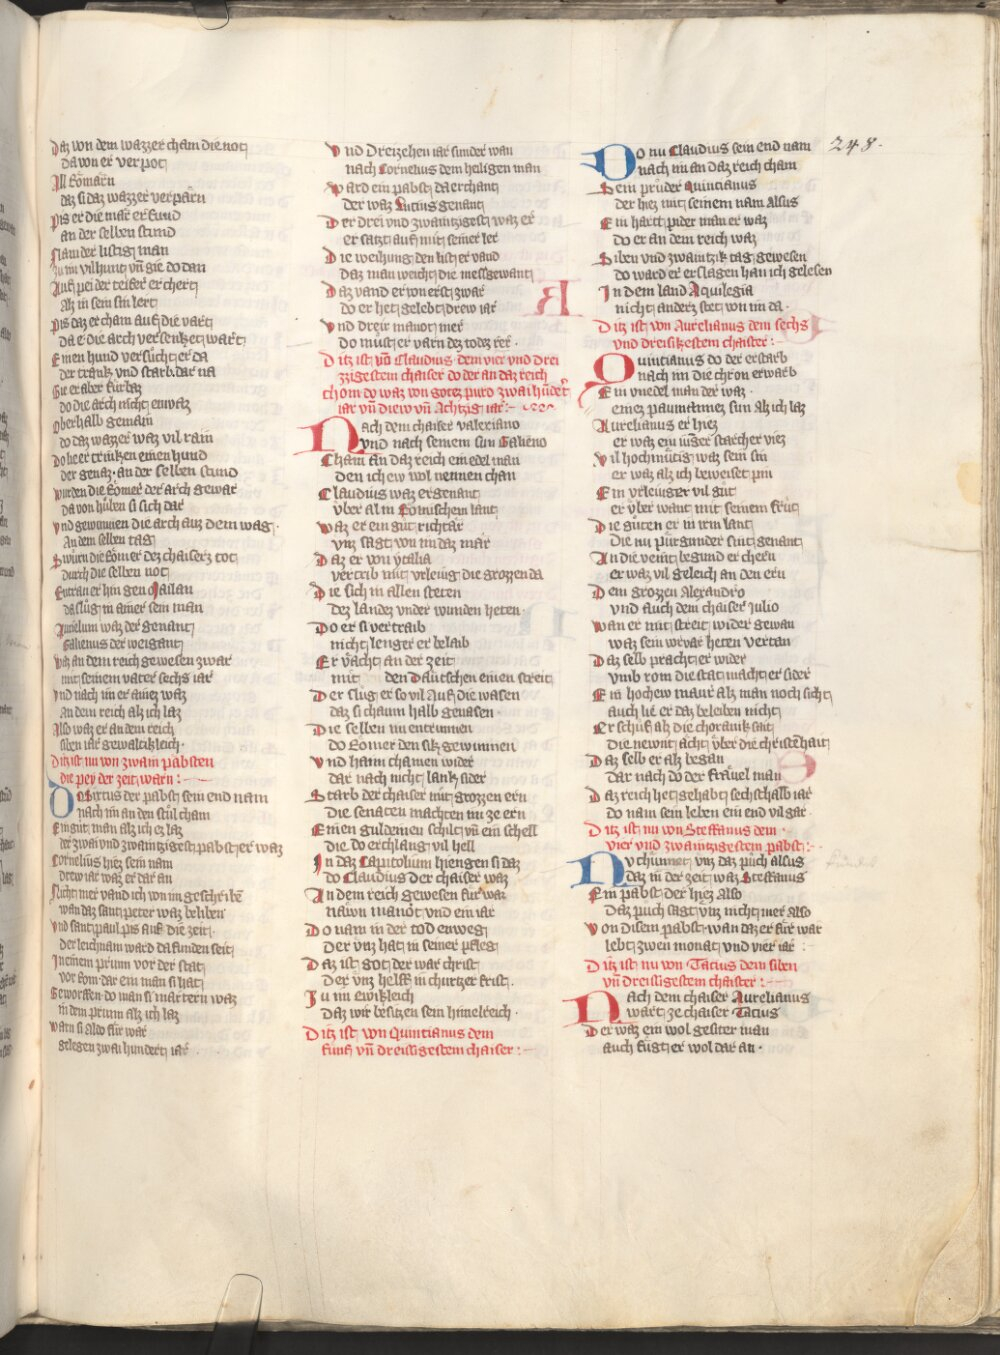 Daz von dem wazzer cham die not
da von er verpot
All Romærn
daz si daz wazzer verpærn
Pis er die mær erfund
an der selben stund
Nam der listig man
zu im vil hunt vñ gie do dan
Auf pei der teifer er chert
Alz in sein sin lert
Pis daz er cham auf die vart
da e die arch versenket wart
Einen hund versucht er da
der trank vnd starb dar na
Gie er aber fürbaz
do die arch nicht enwaz
Oberhalb gemain
do daz wazzer waz vil rain
Do lie er trinken einen hund
der genaz an der selben stund
Wurden die Romer der arch gewar
da von huben si sich dar
Vnd gewunnen die arch auz dem wag
An dem selben tag
Swuren die Romer dez chaiserz tot
durch die selben not
Entran er hin gen Mailan
da slug in ainer sein man
Aurelum waz der genant
Galienus der weigant
Waz an dem reich gewesen zwar
mit seinem vater sechs iar
Vnd nach im er ainez waz
An dem reich alz ich laz
Also waz er an dem reich
siben iar gewaltikleich
Ditz ist nu von zwain pabsten
die pey der zeit warn :
Do Sixtus der pabst sein end nam
nach im an den stul cham
Ein gut man alz ich ez laz
der zwai vnd zwaintzigest pabst er waz
Cornelius hiez sein nam
drew iar waz er dar an
Nicht mer vand ich von im geschribẽ
wan daz sant peter waz beliben
Vnd sant paul pis auf die zeit
der leichnam ward da funden seit
In einem prunn vor der stat
vor Rom dar ein man si hat
Geworffen do man si martern waz
in dem prunn alz ich laz
Warn si Also für war
gelegen zwai hundert iar
Vnd dreizehen iar sunder wan
nach Cornelius dem heiligen man
Ward ein pabst da erchant
der waz Lucius genant
Der drei vnd zwaintzigest waz er
er satzt auf mit seiner ler
Die weihung den list er vand
daz man weicht die messgewant
Daz vand er von erst zwar
do er het gelebt drew iar
Vnd dreir manot mer
do must er varn dez todez ker
Ditz ist vñ Claudius dem vier vnd drei
zzigestem chaiser do der an daz reich
chom do waz von gotez purd zwai hũdert
iar vñ drew vñ Achtzig iar :
Nach dem chaiser valeriano
vnd nach seinem sun Galieno
Cham an daz reich ein edel man
den ich ew wol nennen chan
Claudius waz er genant
vber al in Romischem lant
Waz er ein gut richtær
vnz sagt von im daz mær
Daz er von ytalia
vertrib mit vrleug die grozzen da
Die sich in allen steten
dez landez vnder wunden heten
Do er si vertraib
nicht lenger er belaib
Er vacht an der zeit
mit den Dautschen einen streit
Der slug er so vil Auf die wasen
daz si chaum halb genasen
Die selben im entrunnen
do Romer den sik gewunnen
Vnd haim chamen wider
dar nach nicht lank sider
Starb der chaiser mit grozzen ern
die senaten machten im ze ern
Einen guldeinen schilt vñ ein schell
die do erchlangt vil hell
In daz Capitolium hiengen si daz
do Claudius der chaiser waz
An dem reich gewesen für war
naivn manot vnd ein iar
Do nam in der tod enweg
Der vnz hat in seiner pfleg
Daz ist got der war christ
Der vnz helff in churtzer frist
Zu im ewikleich
Daz wir besitzen sein himelreich
Ditz ist von Quintianus dem
funf vñ dreissigestem chaiser :
Do nu Claudius sein end nam 248.
nach im an daz reich cham
Sein pruder Quintianus
der hiez mit seinem nam Alsus
Ein hart pider man er waz
do er an dem reich waz
Siben vnd zwaintzik tag gewesen
do ward er erslagen han ich gelesen
In dem land Aquilegia
nicht anderz stet von im da
Ditz ist von Aurelianus dem sechs
vnd dreisikestem chaiser :
Quintianus do der erstarb
nach im die chron erwarb
Ein vnedel man der waz
einez paumannez sun Alz ich laz
Aurelianus er hiez
er waz ein iunger starcher riez
Vil hochmutig waz sein sin
er waz alz ich beweiset pin
Ein vrleuger vil gut
er vber want mit seinem frut
Die guten er in irm lant
Die nu purgunder sint genant
An die veint begund er chern
er waz vil geleich an den ern
Dem grozzen Alexandro
vnd auch dem chaiser Julio
Wan er mit streit wider gewan
waz sein vorvar heten vertan
Daz selb pracht er wider
vmb rom die stat macht er sider
Ein hochew maur alz man noch sicht
auch lie er daz beleiben nicht
Er schuf alz die choranik sait
Die newnt acht vber die christẽhait
Daz selb er alz began
dar nach do der fravel man
Daz reich het gehabt sechshalb iar
do nam sein leben ein end vil gar
Ditz ist nu von Steffanus dem
vier vnd zwaintzigestem pabst :
Nu chunnet vnz daz puch alsus
daz in der zeit waz Steffanus
Ein pabst der hiez Also
Daz puch sagt vnz nicht mer Also
Von disem pabst wan daz er für war
lebt zwen monat vnd vier iar :
Ditz ist nu von Tacius dem siben
vñ dreissigestem chaiser :
Nach dem chaiser Aurelianus
wart ze chaiser Tacius
Der waz ein wol gesiter man
auch fugt er wol dar an